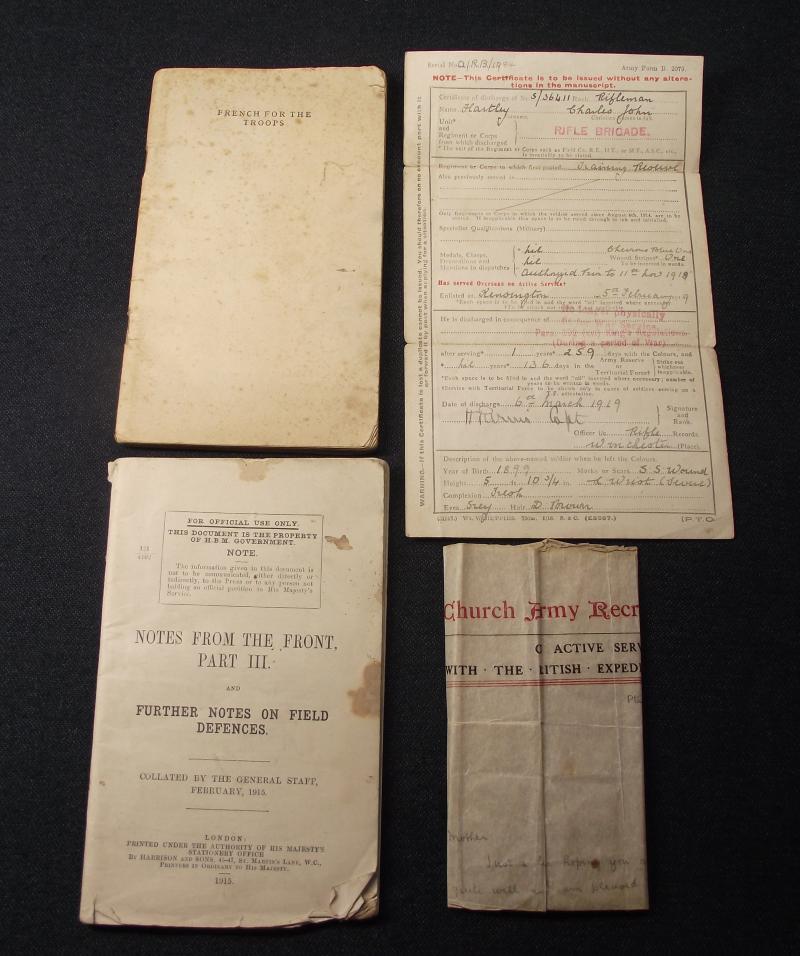 FRENCH FOR THE
TROOPS
Army Form B. 2079.
NOTE—This Certificate is to be issued without any altera-
tions in the manuscript.
Certificate of discharge of No. S/36411 Rank Rifleman
Name Hartley Charles John
Unit*
and
Regiment or Corps
from which discharged
RIFLE BRIGADE.
Regiment or Corps to which first posted Training Reserve
Also previously served in
Only Regiments or Corps in which the soldier served since August 4th, 1914, are to be
Specialist Qualifications (Military)
Medals, Clasps,
Decorations and
Mentions in dispatches
Nil
Nil
Chevrons Blue One
Wound Stripes* One
To be inserted in words.
Has served Overseas on Active Service*
Enlisted at Kensington 5th February
He is discharged in consequence of
No longer physically
War Service.
King's Regulations
(During a period of War)
after serving* 1 years* 259 days with the Colours, and
* Nil years* 136 days in the Army Reserve
or
Territorial Force
Strike out
whichever
inapplicable.
*Each space is to be filled in and the word "nil" inserted where necessary; number of
years to be written in words.
Date of discharge 6th March 1919
Capt
Signature
and
Rank.
Officer i/c Rifle Records.
Winchester (Place).
Description of the above-named soldier when he left the Colours.
Year of Birth 1899 Marks or Scars S S Wound
Height 5 ft. 10 3/4 in. L Wrist (Severe)
Complexion Fresh
Eyes Grey Hair D. Brown
(P.T.O.
WARNING.—If this Certificate is lost a duplicate cannot be issued. You should therefore on no account part with it
or forward it by post when applying for a situation.
FOR OFFICIAL USE ONLY.
THIS DOCUMENT IS THE PROPERTY
OF H.B.M. GOVERNMENT.
NOTE.
The information given in this document is
not to be communicated, either directly or
indirectly, to the Press or to any person not
holding an official position in His Majesty's
Service.
NOTES FROM THE FRONT,
PART III.
AND
FURTHER NOTES ON FIELD
DEFENCES.
COLLATED BY THE GENERAL STAFF,
FEBRUARY, 1915.
LONDON:
PRINTED UNDER THE AUTHORITY OF HIS MAJESTY'S
STATIONERY OFFICE
BY HARRISON AND SONS, 45-47, ST. MARTIN'S LANE, W.C.,
PRINTERS IN ORDINARY TO HIS MAJESTY.
1915.
Church Army Recr
ACTIVE SERV
WITH · THE · ITISH · EXPED
Mother
Just a hoping you
quite well am pleased